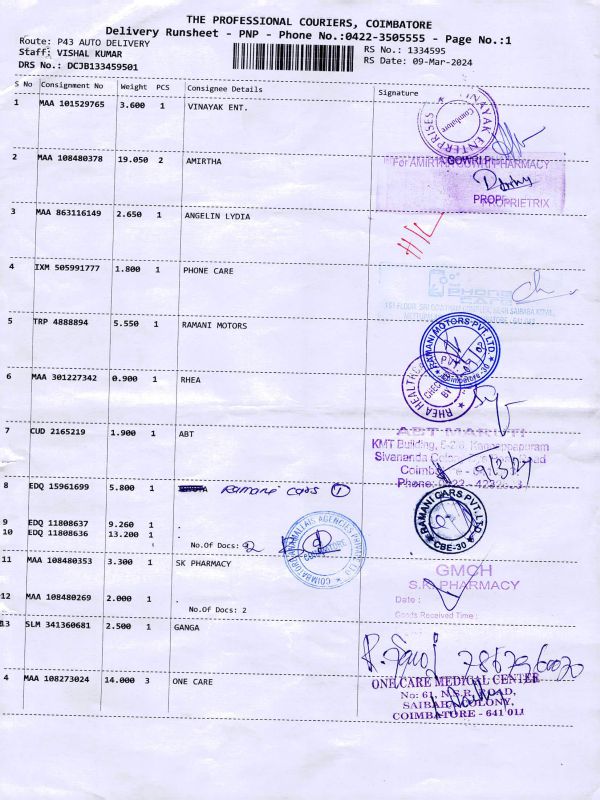 THE PROFESSIONAL COURIERS, COIMBATORE
Delivery Runsheet - PNP - Phone No.:0422-3505555 - Page No.:1
Route: P43 AUTO DELIVERY
RS No.: 1334595
Staff: VISHAL KUMAR
RS Date: 09-Mar-2024
DRS No.: DCJB133459501
S No Consignment No Weight PCS Consignee Details Signature
1 MAA 101529765 3.600 1 VINAYAK ENT.
VINAYAK ENTERPRISES
Coimbatore
2 MAA 108480378 19.050 2 AMIRTHA
PHARMACY
GOWRI P
PROPRIETRIX
3 MAA 863116149 2.650 1 ANGELIN LYDIA
H/L
4 IXM 505991777 1.800 1 PHONE CARE
PHONE CARE
5 TRP 4888894 5.550 1 RAMANI MOTORS
RAMANI MOTORS PVT. LTD.
Coimbatore-30
6 MAA 301227342 0.900 1 RHEA
RHEA HEALTHCARE
7 CUD 2165219 1.900 1 ABT
ABT MARUTI
KMT Building,
Sivananda Colony
Phone: 0422
9/3/24
8 EDQ 15961699 5.800 1 Ramani Cars 1
RAMANI CARS PVT.LTD.
CBE-30
9 EDQ 11808637 9.260 1 .
10 EDQ 11808636 13.200 1 No.Of Docs: 2
COIMBATORE
11 MAA 108480353 3.300 1 SK PHARMACY
GMCH
S.K. PHARMACY
Date :
Goods Received Time :
12 MAA 108480269 2.000 1 .
No.Of Docs: 2
13 SLM 341360681 2.500 1 GANGA
4 MAA 108273024 14.000 3 ONE CARE
ONE CARE MEDICAL CENTER
No: 61, N.S.R. ROAD,
SAIBABA COLONY,
COIMBATORE - 641 011